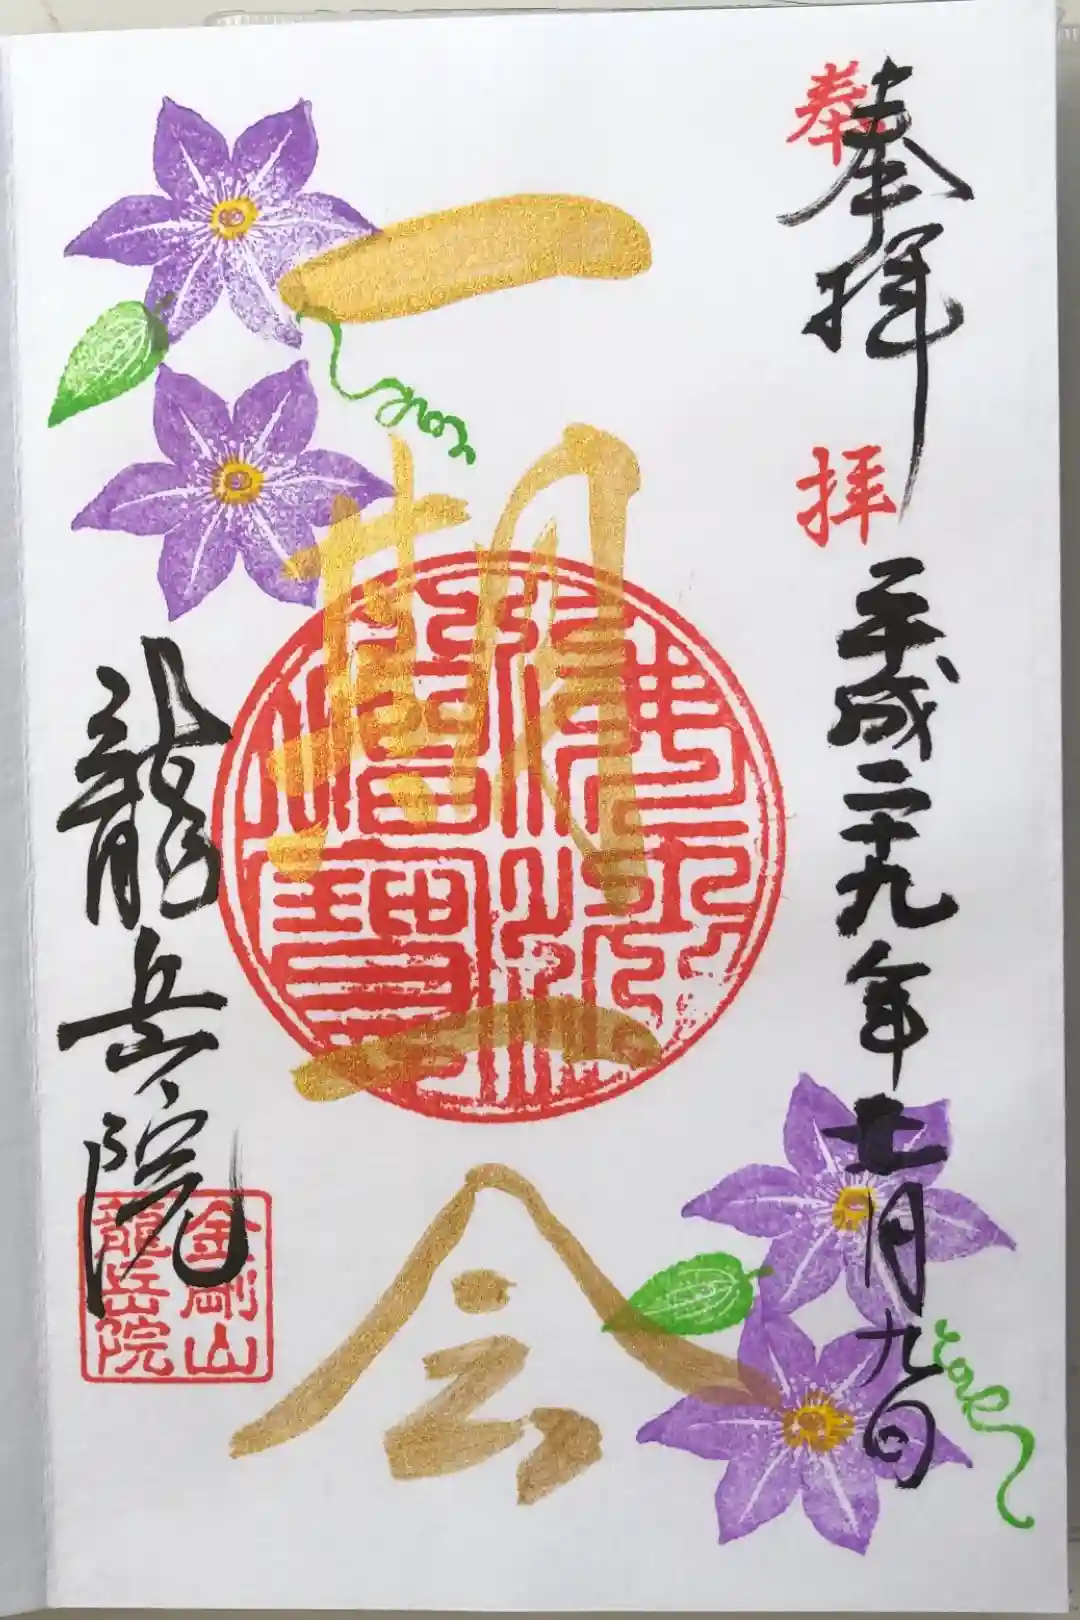 奉拝
奉拝
平成二十九年七月九日
一期一会
佛法僧寶
龍岳院
金剛山
龍岳院